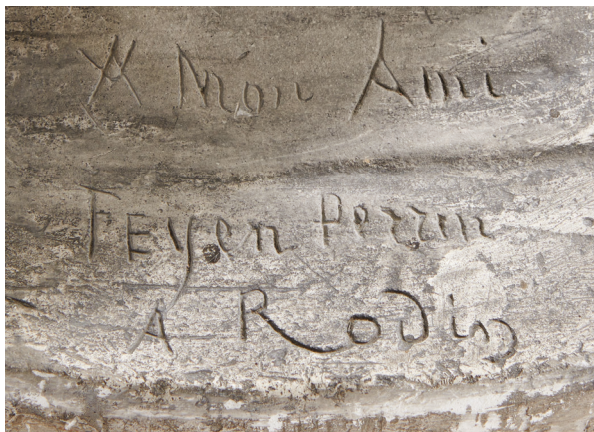 A Mon Ami
FEyen Perrin
A Rodin